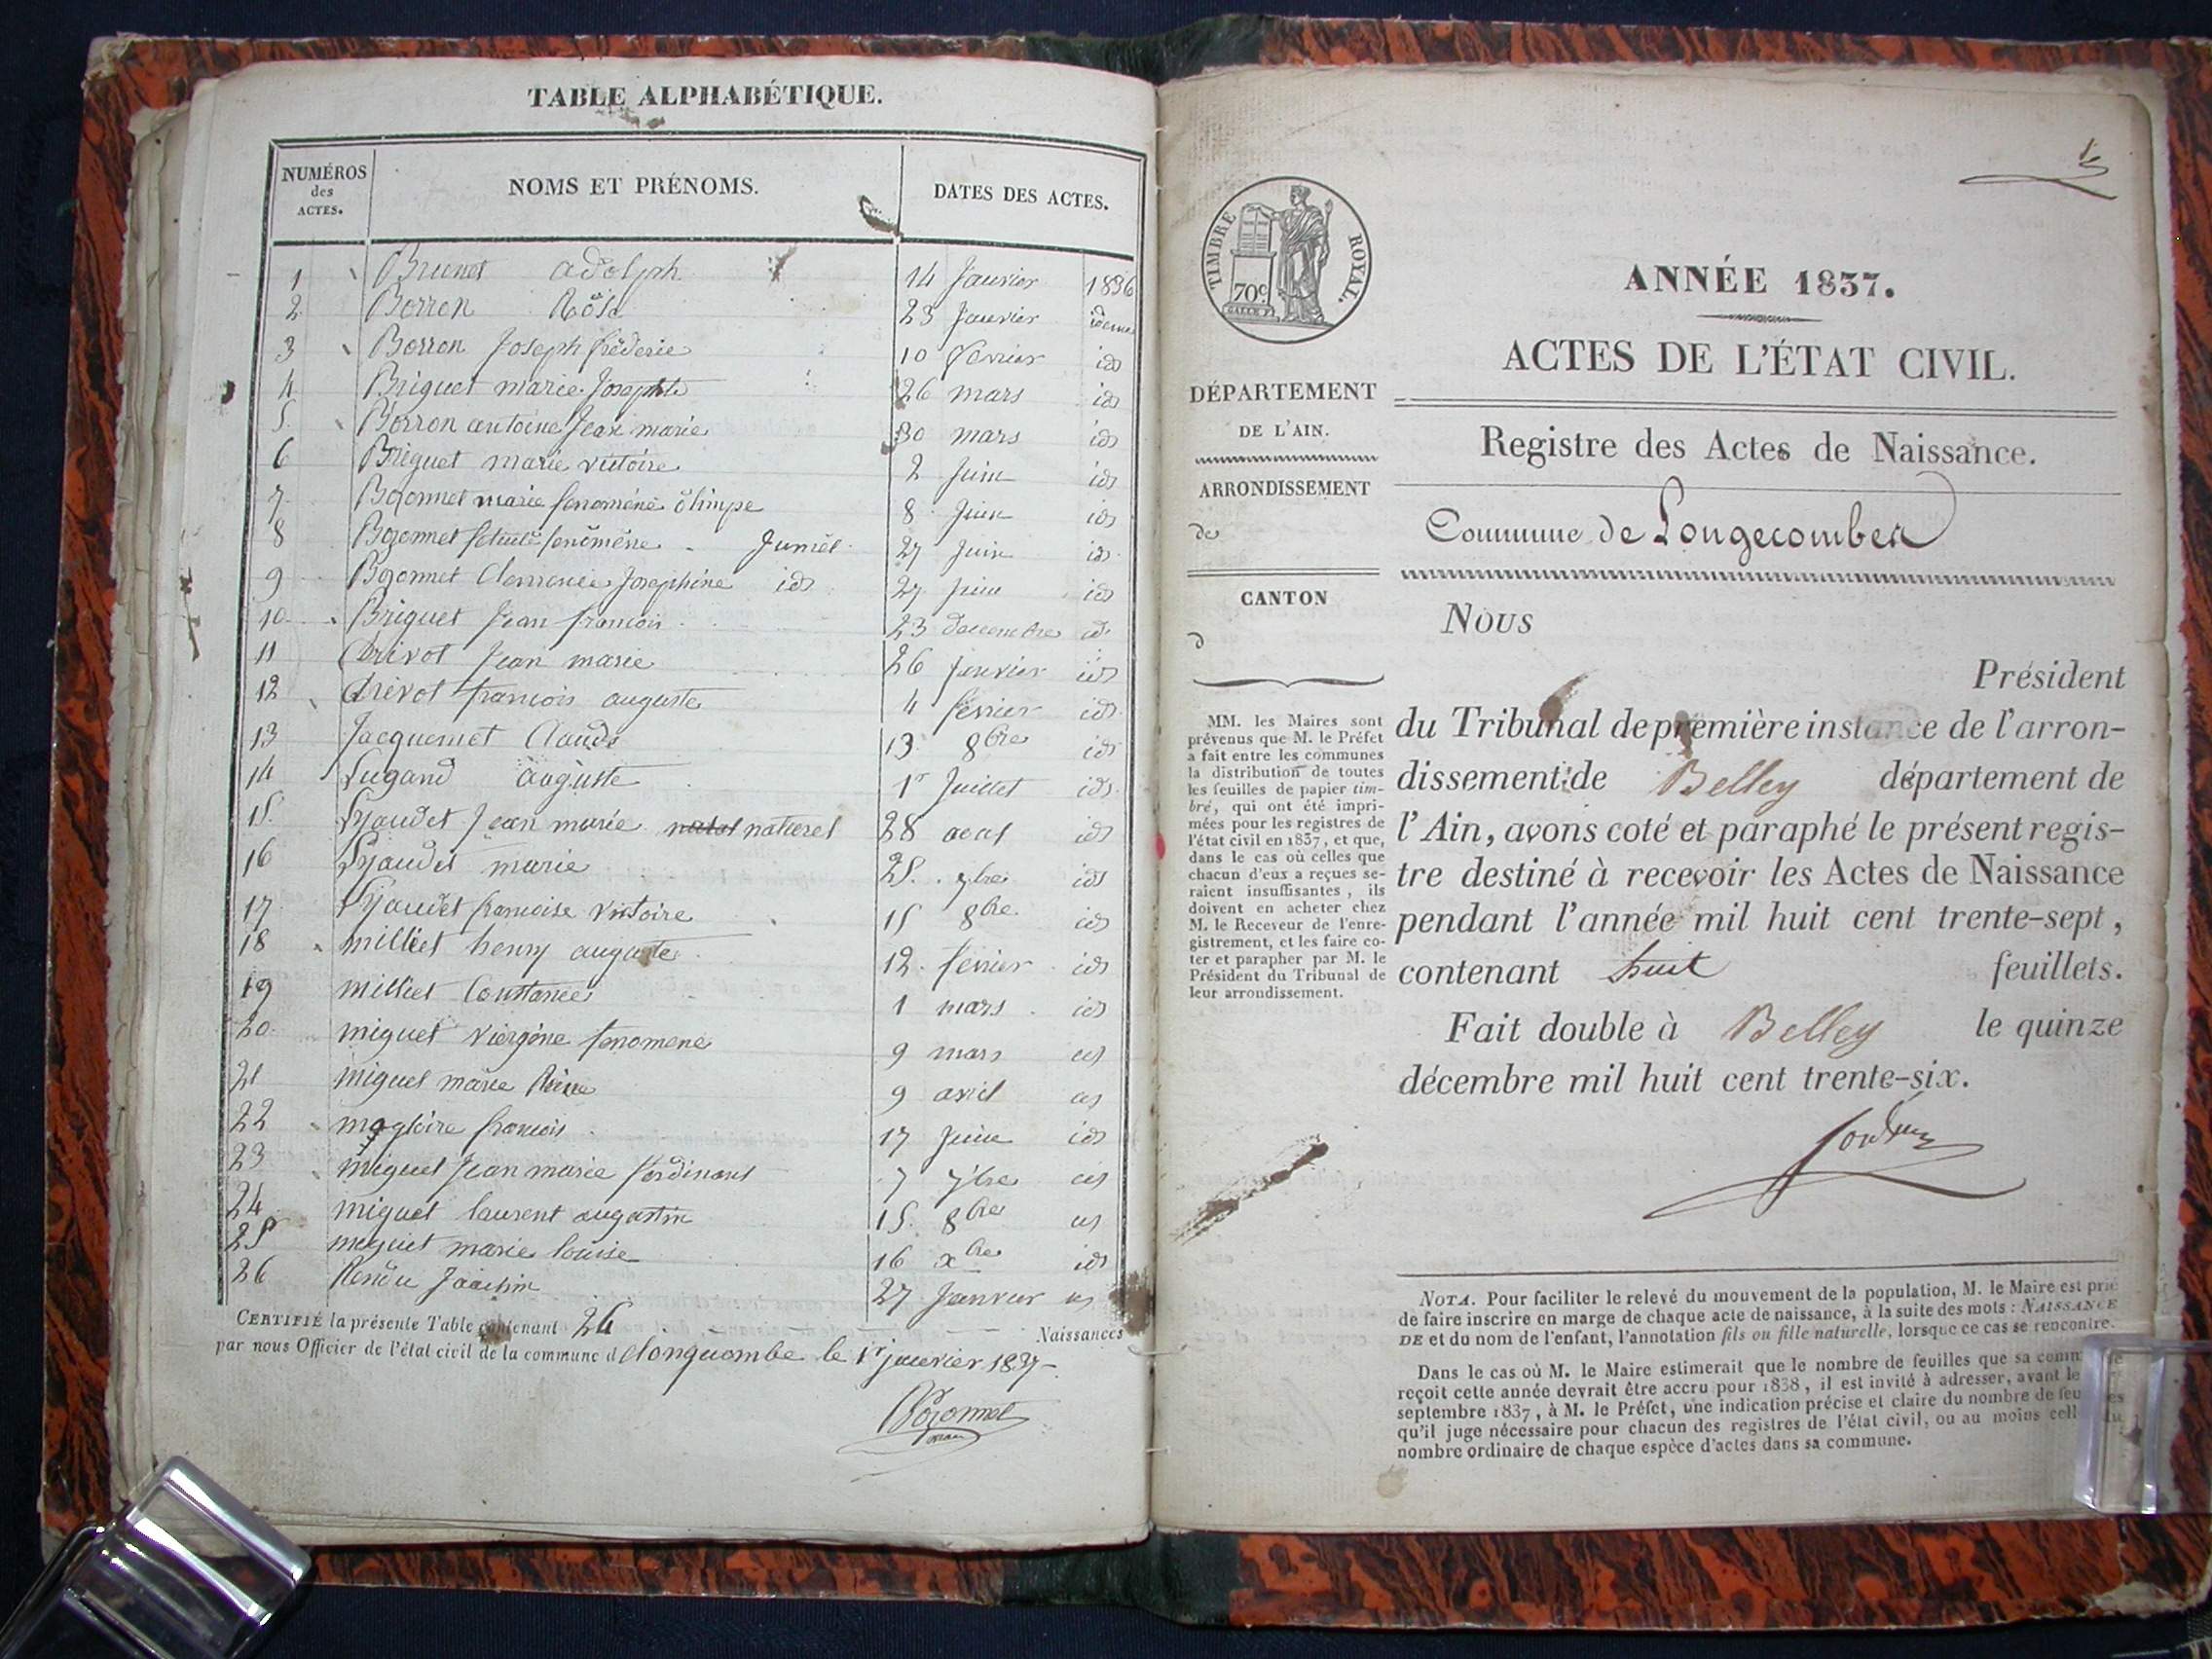 TABLE ALPHABÉTIQUE.
NUMÉROS des ACTES. NOMS ET PRÉNOMS. DATES DES ACTES.
1 Brunet adolph 14 Janvier 1836
2 Borron Rôse 23 Janvier idem
3 Borron Joseph fréderic 10 fevrier id
4 Briguet marie Josephte 26 mars id
5. Borron antoine Jean marie 30 mars id
6 Briguet marie victoire 2 Juin id
7. Bozonnet marie fenoméne ôlimpe 8 Juin id
8 Bozonnet fenoméne Jumel 27 Juin id
9 Bozonnet Clemence Josephine id 27 Juin id
10 Briguet Jean francois 23 decembre id
11 Drivot Jean marie 26 janvier id
12 Drivot francois auguste 4 fevrier id
13 Jacquemet Claude 13 8bre id
14 Lugand auguste 1r Juillet id
15. Lyaudet Jean marie natal naturel 28 aout id
16 Lyaudet marie 25. 7bre id
17 Lyaudet francoise victoire 15 8bre id
18 milliet henry auguste 12. fevrier id
19 milliet Constance 1 mars id
20 miguet viergine fenomene 9 mars id
21 miguet marie Reine 9 avril id
22 magloire francois 17 Juin id
23 miguet Jean marie ferdinant 7 7bre id
24 miguet laurent augustin 15. 8bre id
25 miguet marie louise 16 xbre id
26 Rendu Joachim 27 Janvier id
CERTIFIÉ la présente Table contenant 26 Naissances
par nous Officier de l'état civil de la commune d Longecombe le 1r janvier 1837
Bozonnet
maire
1
TIMBRE ROYAL.
70c
ANNÉE 1837.
ACTES DE L'ÉTAT CIVIL.
DÉPARTEMENT
DE L'AIN.
ARRONDISSEMENT
de
CANTON
d
Registre des Actes de Naissance.
Commune de Longecombe
MM. les Maires sont
prévenus que M. le Préfet
a fait entre les communes
la distribution de toutes
les feuilles de papier tim-
bré, qui ont été impri-
mées pour les registres de
l'état civil en 1837, et que,
dans le cas où celles que
chacun d'eux a reçues se-
raient insuffisantes, ils
doivent en acheter chez
M. le Receveur de l'enre-
gistrement, et les faire co-
ter et parapher par M. le
Président du Tribunal de
leur arrondissement.
Nous
Président
du Tribunal de première instance de l'arron-
dissement de Belley département de
l'Ain, avons coté et paraphé le présent regis-
tre destiné à recevoir les Actes de Naissance
pendant l'année mil huit cent trente-sept,
contenant huit feuillets.
Fait double à Belley le quinze
décembre mil huit cent trente-six.
NOTA. Pour faciliter le relevé du mouvement de la population, M. le Maire est prié
de faire inscrire en marge de chaque acte de naissance, à la suite des mots : NAISSANCE
DE et du nom de l'enfant, l'annotation fils ou fille naturelle, lorsque ce cas se rencontre.
Dans le cas où M. le Maire estimerait que le nombre de feuilles que sa commune
reçoit cette année devrait être accru pour 1838, il est invité à adresser, avant le
septembre 1837, à M. le Préfet, une indication précise et claire du nombre de feuilles
qu'il juge nécessaire pour chacun des registres de l'état civil, ou au moins celle du
nombre ordinaire de chaque espèce d'actes dans sa commune.